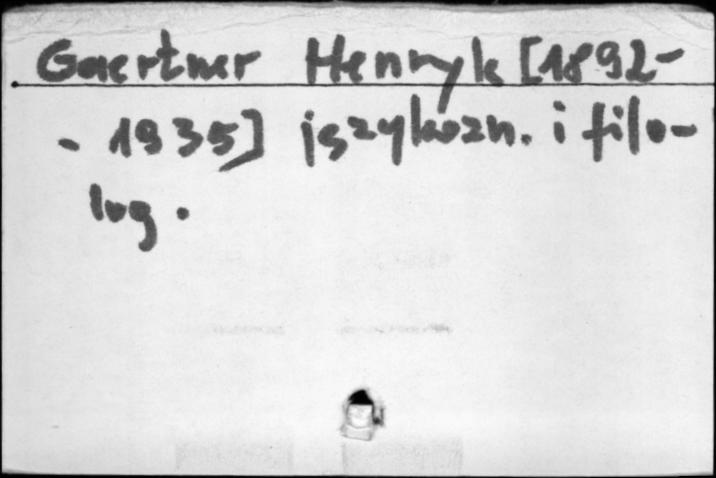 Gaertner Henryk [1892-
- 1935] językozn. i filo-
log.